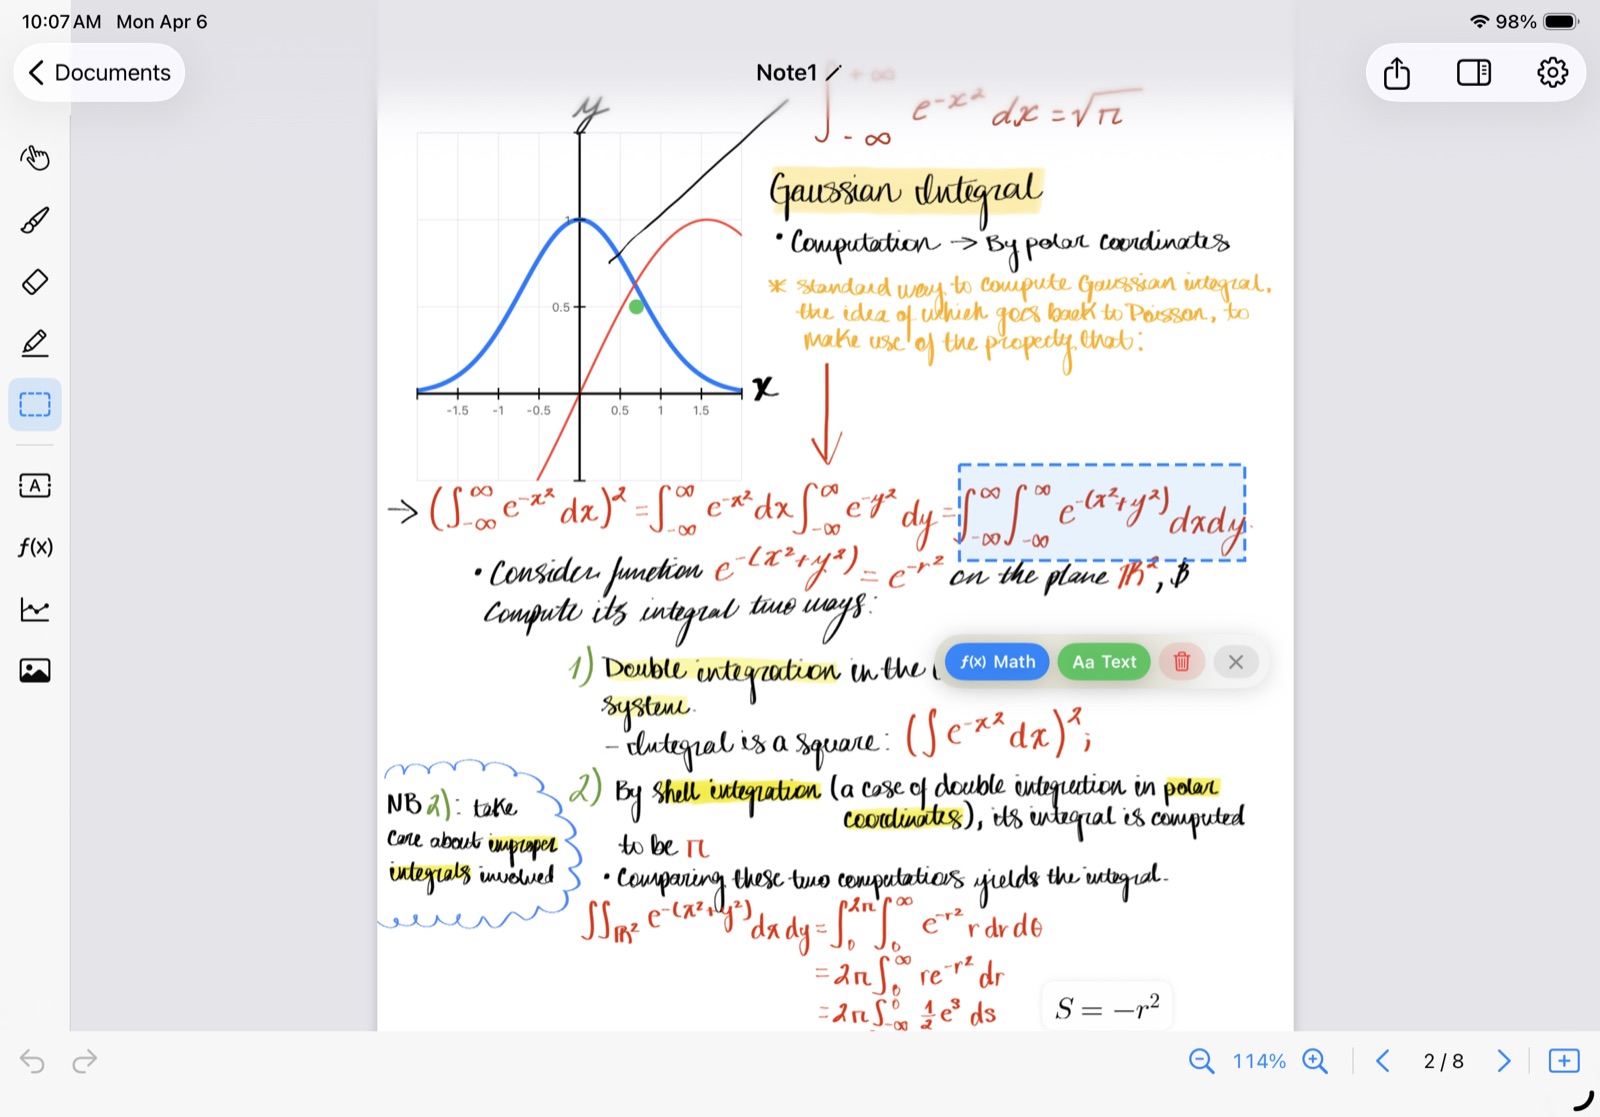 10:07 AM Mon Apr 6
98%
Documents
Note1
∫₋∞^+∞ e^-x² dx = √π
y
1
0.5
-1.5 -1 -0.5 0.5 1 1.5
x
Gaussian Integral
• Computation → By polar coordinates
* Standard way to compute Gaussian integral,
the idea of which goes back to Poisson, to
make use of the property that:
→ (∫₋∞^∞ e^-x² dx)² = ∫₋∞^∞ e^-x² dx ∫₋∞^∞ e^-y² dy = ∫₋∞^∞ ∫₋∞^∞ e^-(x²+y²) dxdy.
• Consider function e^-(x²+y²) = e^-r² on the plane ℝ², &
compute its integral two ways:
1) Double integration in the
f(x) Math
Aa Text
system.
- Integral is a square: (∫e^-x² dx)²;
2) By shell integration (a case of double integration in polar
coordinates), its integral is computed
to be π
NB 2): take
care about improper
integrals involved
• Comparing these two computations yields the integral.
∫∫ℝ² e^-(x²+y²) dx dy = ∫₀^2π ∫₀^∞ e^-r² r dr dθ
= 2π ∫₀^∞ re^-r² dr
= 2π ∫₋∞^0 ½ e^s ds
S = −r²
A
f(x)
114%
2 / 8